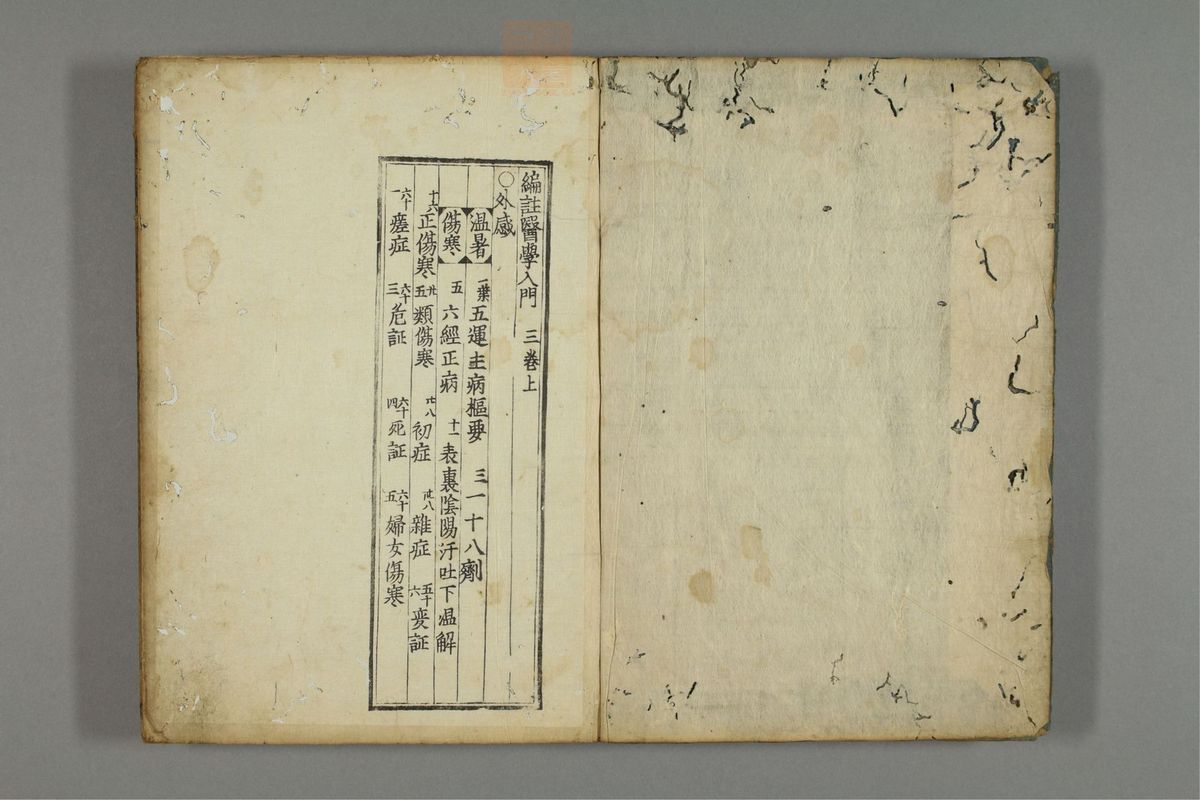 編註醫學入門 三巻上
○外感
温暑 一葉五運主病樞要 三一十八劑
傷寒 五六經正病 十一表裏陰陽汗吐下温解
十六正傷寒 廿五類傷寒 廿八初症 卅八雜症 五十六変証
六十一瘥症 六十三危証 六十四死証 六十五婦女傷寒